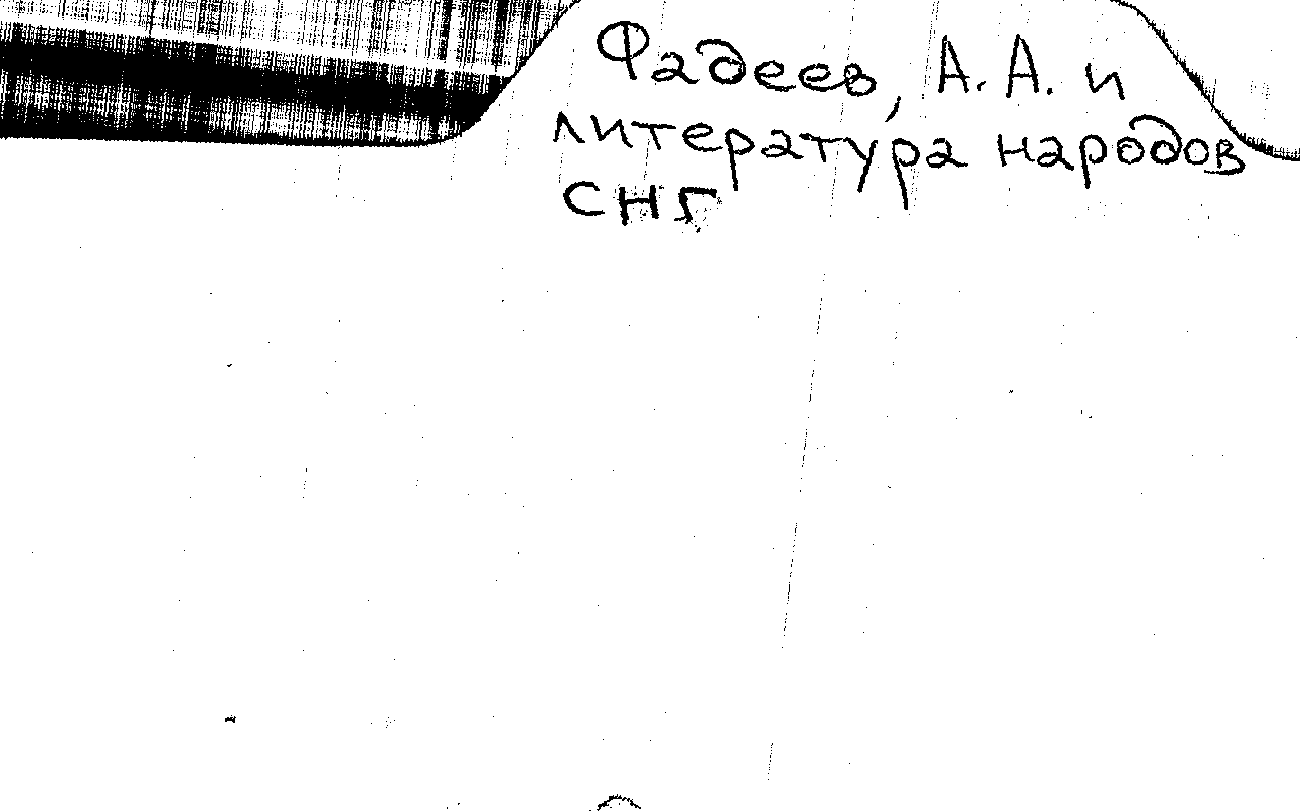 Фадеев, А. А. и
литература народов
СНГ